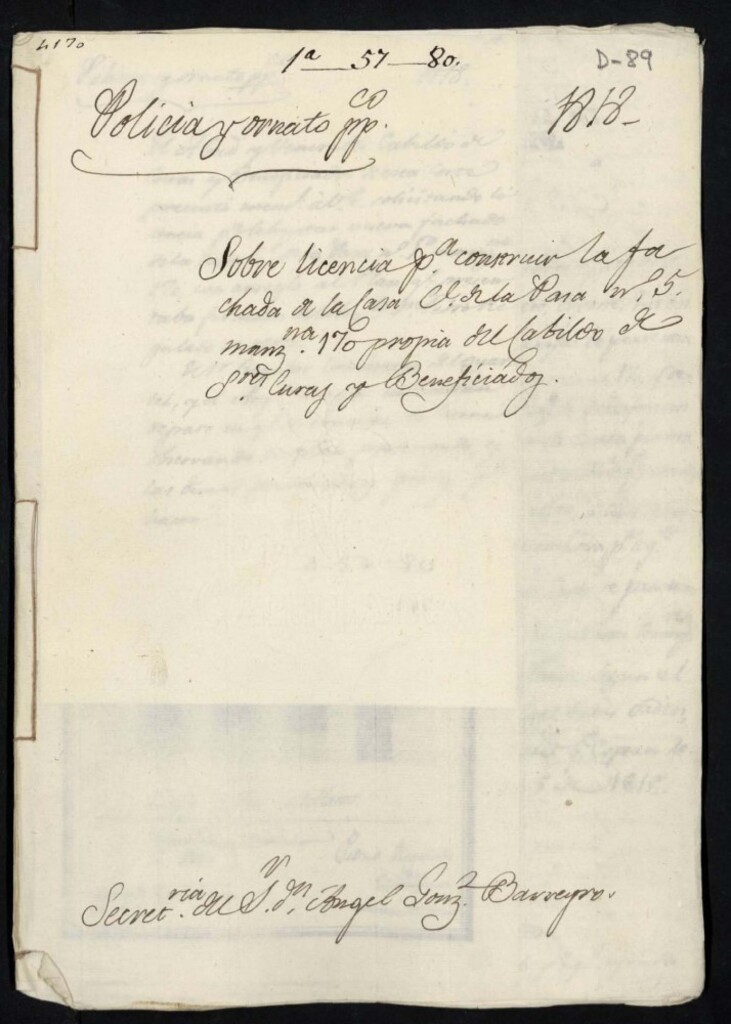 4170
1ª 57 80.
D-89
Policia y ornato pp.co
1818
Sobre licencia p.ª construir la fa
chada de la Casa C. de la Pasa n.º 5.
manz.na 170 propia del Cabildo de
S.res Curas y Beneficiados.
Secret.ria del S.r d.n Angel Gonz.z Barreyro.